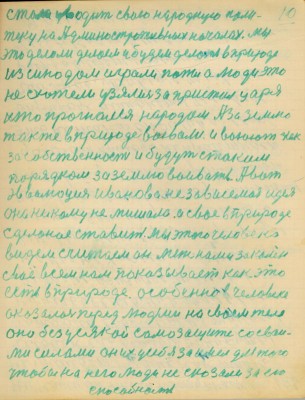 стала вводит свою народную поли-
тику на Административных началах. мы
это делом делаем и будем делать в природе
из сынодом играли попы а люди это
не схотели узялися за престол царя
його прогнали народом А за землю
также в природе воевали и воюют как
за собственность и будут с таким
порядком за землю воивать. А вот
Эволюция Иванова независемая идея
она никому не мишала а свое в природе
сделано ставит. мы этого человека
видем считаем он меж нами закон
свае всем нам показывает как это
есть в природе. особенно человека
оказалася перед людми на своем теле
она без всякой самозащите со сваи-
ми силами они у себя для того
чтобы на него люде не сказали за его
способности